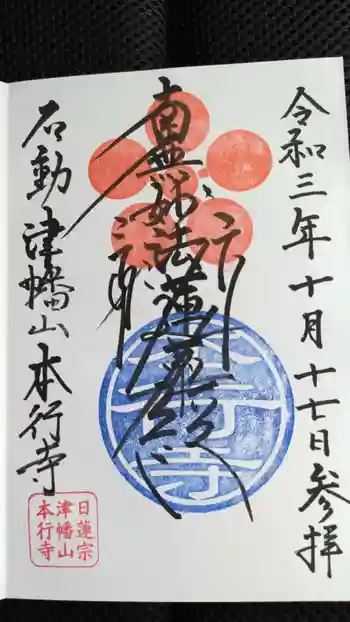 令和三年十月十七日参拝
南無妙法蓮華経
石動 津幡山 本行寺
本行寺
日蓮宗
津幡山
本行寺